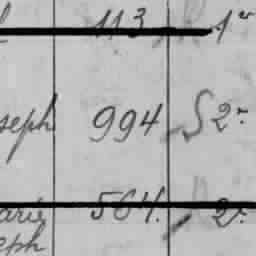 113 1er
seph 994 S 2e
arie 564. 2e
eph